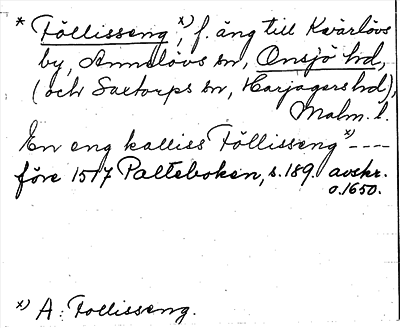 * Föllisseng ˣ⁾, f. äng till Kvärlövs
by, Annelövs sn, Onsjö hd,
(och Saxtorps sn, Harjagers hd),
Malm. l.
En eng kalliss Föllisseng ˣ⁾ ----
före 1517 Palteboken, s. 189. avskr.
o. 1650.
ˣ⁾ A: Follisseng.